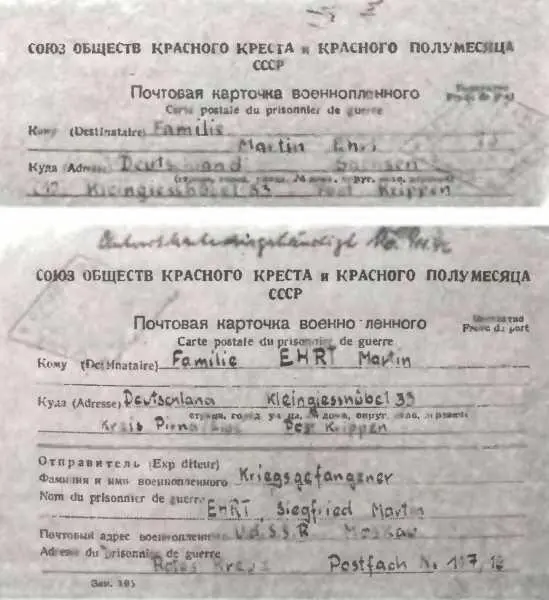 СОЮЗ ОБЩЕСТВ КРАСНОГО КРЕСТА и КРАСНОГО ПОЛУМЕСЯЦА
СССР
Почтовая карточка военнопленного
Carte postale du prisonnier de guerre
Кому (Destinataire) Familie
Martin Ehrt
Куда (Adresse) Deutschland Sachsen
Kleingiesshübel 33 Post Krippen
СОЮЗ ОБЩЕСТВ КРАСНОГО КРЕСТА и КРАСНОГО ПОЛУМЕСЯЦА
СССР
Почтовая карточка военнопленного
Бесплатно
Carte postale du prisonnier de guerre
Franc de port
Кому (Destinataire) Familie EHRT Martin
Куда (Adresse) Deutschland Kleingiesshübel 33
страна, город, улица, № дома, округ, село, деревня
Kreis Pirna Post Krippen
Отправитель (Expéditeur)
Фамилия и имя военнопленного Kriegsgefangener
Nom du prisonnier de guerre EHRT, Siegfried Martin
Почтовый адрес военнопленного U.d.S.S.R Moskau
Adresse du prisonnier de guerre
Rotes Kreuz Postfach N. 117/12
Зак. 105